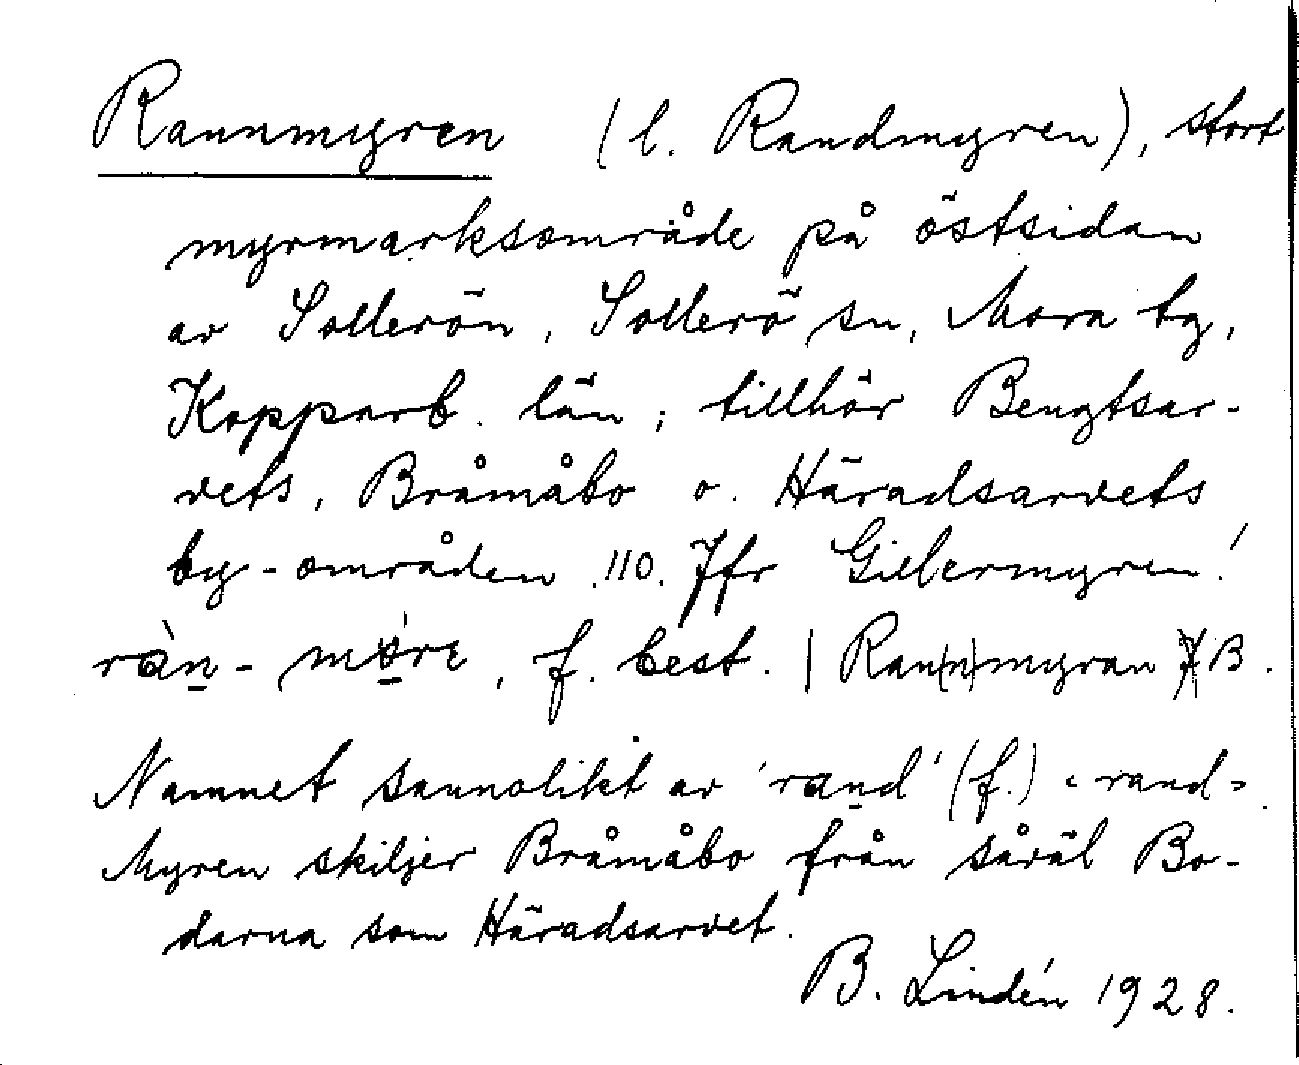 Rannmyren (l. Randmyren), stort
myrmarksområde på östsidan
av Sollerön, Sollerö sn, Mora tg,
Kopparb. län; tillhör Bengtsar-
vets, Bråmåbo o. Häradsarvets
by-områden .110. Jfr Gillermyren!
ràn-, f. best. | Ran(n)myran B.
Namnet sannolikt av 'rand' (f.) = rand-
Myren skiljer Bråmåbo från såväl Bo-
darna som Häradsarvet.
B. Lindén 1928.